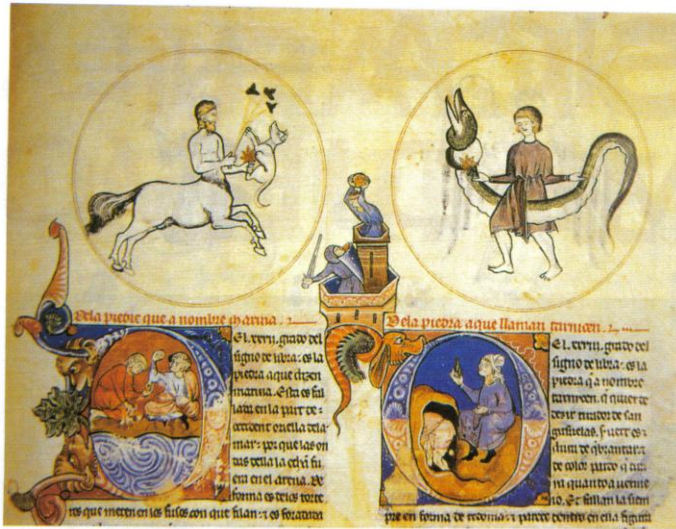 De la piedra que a nombre marina.
El .xxviij. grado del
signo de libra: es la
piedra a que dizen
marina. Esta es fal
lada en la part de
occident en ella dela
mar: por que las on
das della la echan fu
era en el arena. De
forma es delos torte
ros que meten en los fusos con que filan: ⁊ es foradada
De la piedra a que llaman
El .xxviij. grado del
signo de libra: es la
piedra q̃ a nombre
q̃ quier de
zir de san
guijuelas. Fuert es ⁊
dura de q̃brantar: ⁊
de color pardo q̃ tir
ra quanto a uerme
io. Et fallan la siem
pre en forma de redonda: ⁊ parece dentro en ella figura